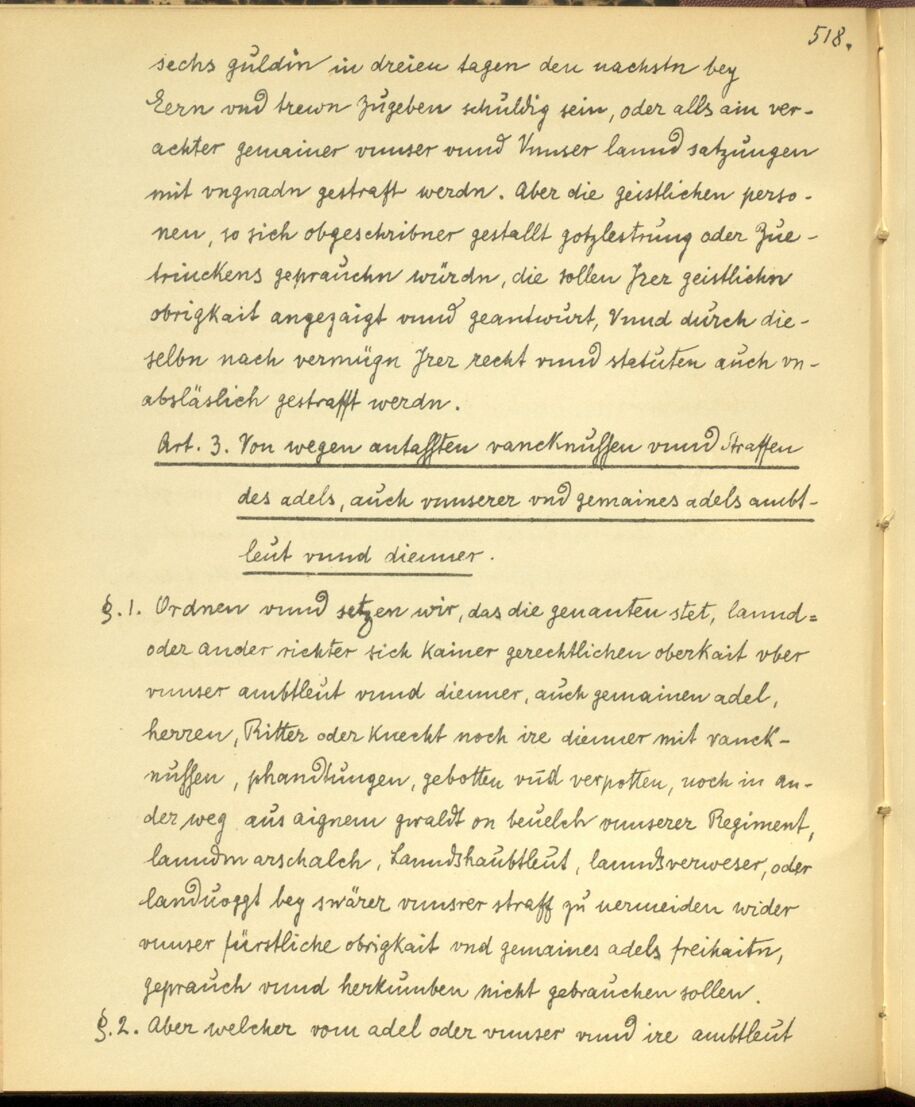 518.
sechs guldin in dreien tagen den nachstn bey
Eern vnd trewn zugeben schuldig sein, oder alls ain ver-
achter gemainer vnnser vnnd Vnnser lannd satzungen
mit vngnadn gestraft werdn. Aber die geistlichen perso-
nen, so sich obgeschribner gestallt gotzlestrung oder Zue-
trinckens geprauchn würdn, die sollen Jrer geistlichn
obrigkait angezaigt vnnd geantwurt, Vnnd durch die-
selbn nach vermügn Jrer recht vnnd statuten auch vn-
absläslich gestrafft werdn.
Art. 3. Von wegen antassten vancknussen vnnd Straffen
des adels, auch vnnserer vnd gemaines adels ambt-
leut vnnd dienner.
§.1. Ordnen vnnd setzen wir, das die genanten stet, lannd=
oder ander richter sich kainer gerechtlichen oberkait vber
vnnser ambtleut vnnd dienner, auch gemainen adel,
herren, Ritter oder Knecht noch ire dienner mit vanck-
nussen, phandtungen, gebotten vnd verpotten, noch in an-
der weg aus aignem gwaldt on beuelch vnnserer Regiment,
lanndmarschalch, Lanndshaubtleut, lanndsverweser, oder
landuoggt bey swärer vnnsrer straff zu uermeiden wider
vnnser fürstliche obrigkait vnd gemaines adels freihaitn,
geprauch vnnd herkumben nicht gebrauchen sollen.
§.2. Aber welcher vom adel oder vnnser vnnd ire ambtleut